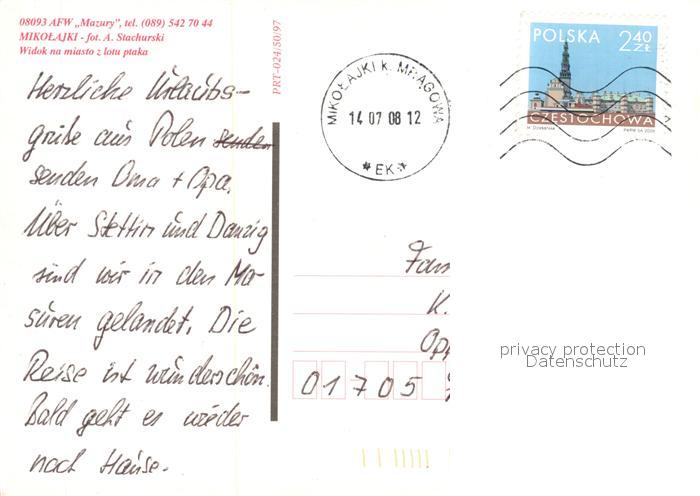 08093 AFW „Mazury”, tel. (089) 542 70 44
MIKOŁAJKI - fot. A. Stachurski
Widok na miasto z lotu ptaka
PRT-024/50/97
Herzliche Urlaubs-
grüße aus Polen senden
senden Oma + Opa.
Über Stettin und Danzig
sind wir in den Ma-
suren gelandet. Die
Reise ist wunderschön.
Bald geht es wieder
nach Hause.
MIKOŁAJKI k. MRĄGOWA
14 07 08 12
* EK *
POLSKA 2,40 ZŁ
CZĘSTOCHOWA
Fam
K.
Opp
01705
privacy protection
Datenschutz